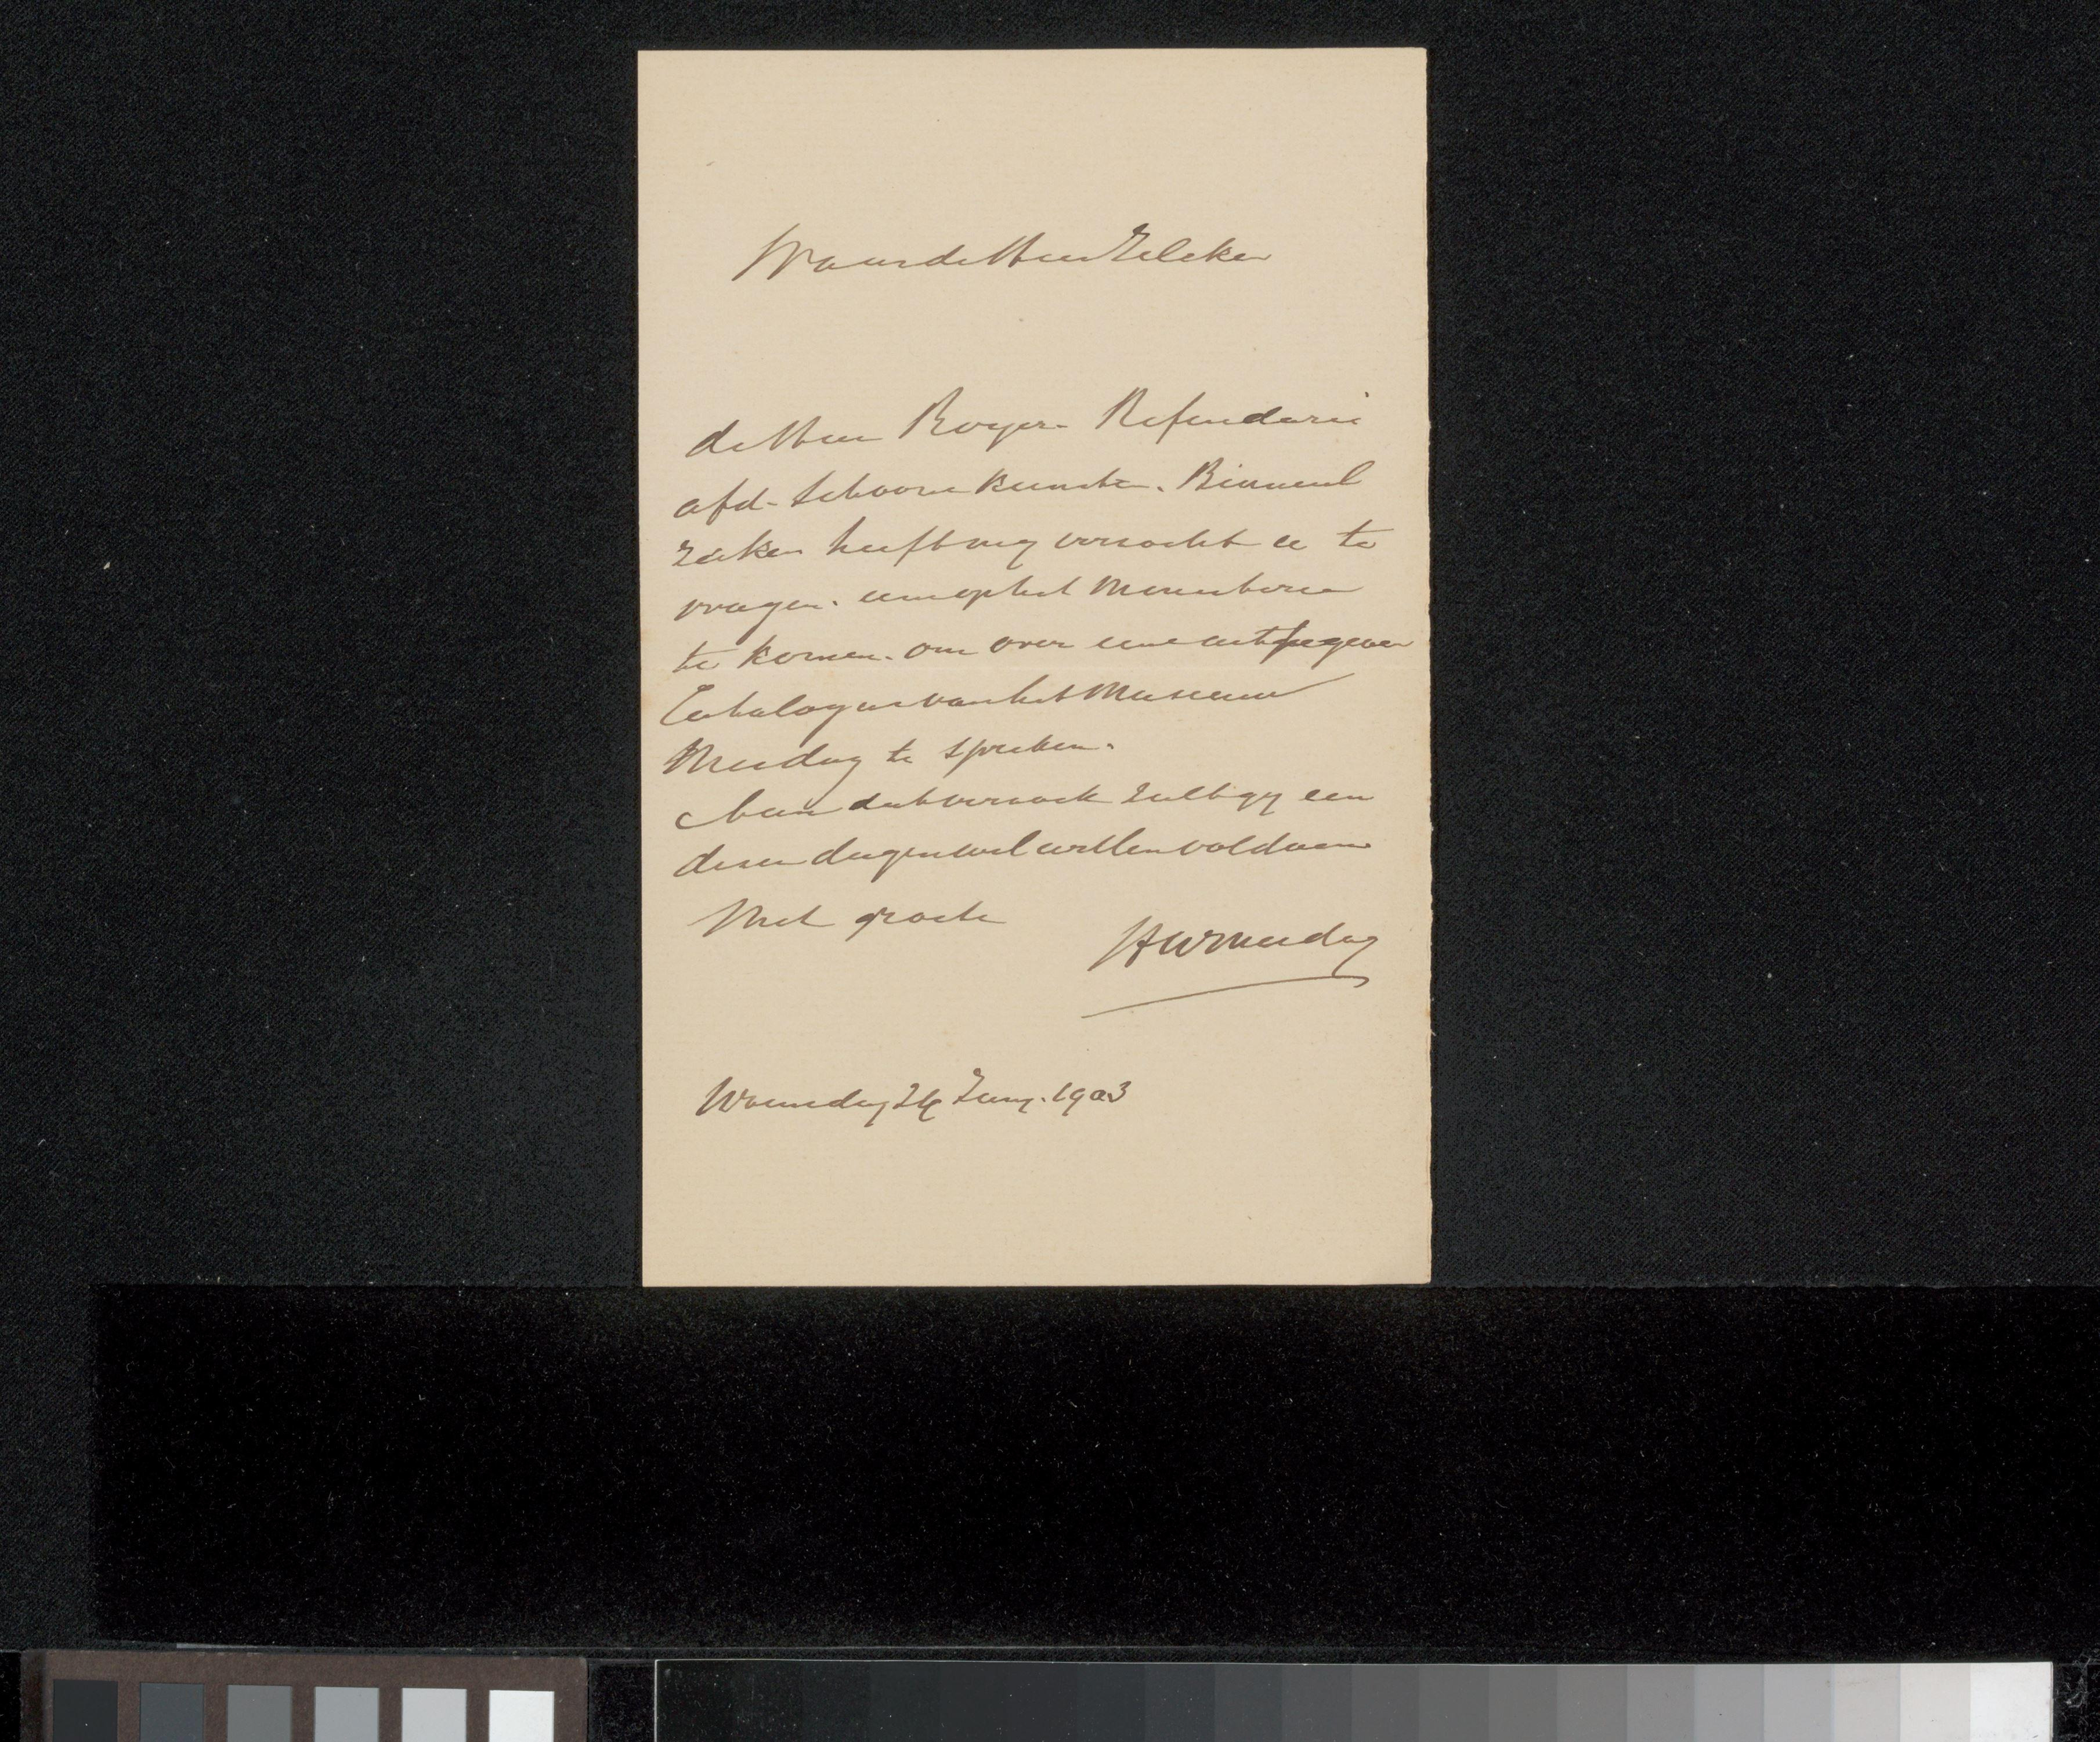 Waarde Heer Zilcken
de Heer Royer. Refendaris
afd. Schoone Kunsten. Binnenl
zaken heeft my verzocht u te
vragen. eens op het Ministerie
te komen. om over eene uit te geven
Catalogus van het Museum
Mesdag te spreken.
Aan dat verzoek zult gy een
dezer dagen wel willen voldoen
Met groete
HWMesdag
Woensdag 24 Juny. 1903